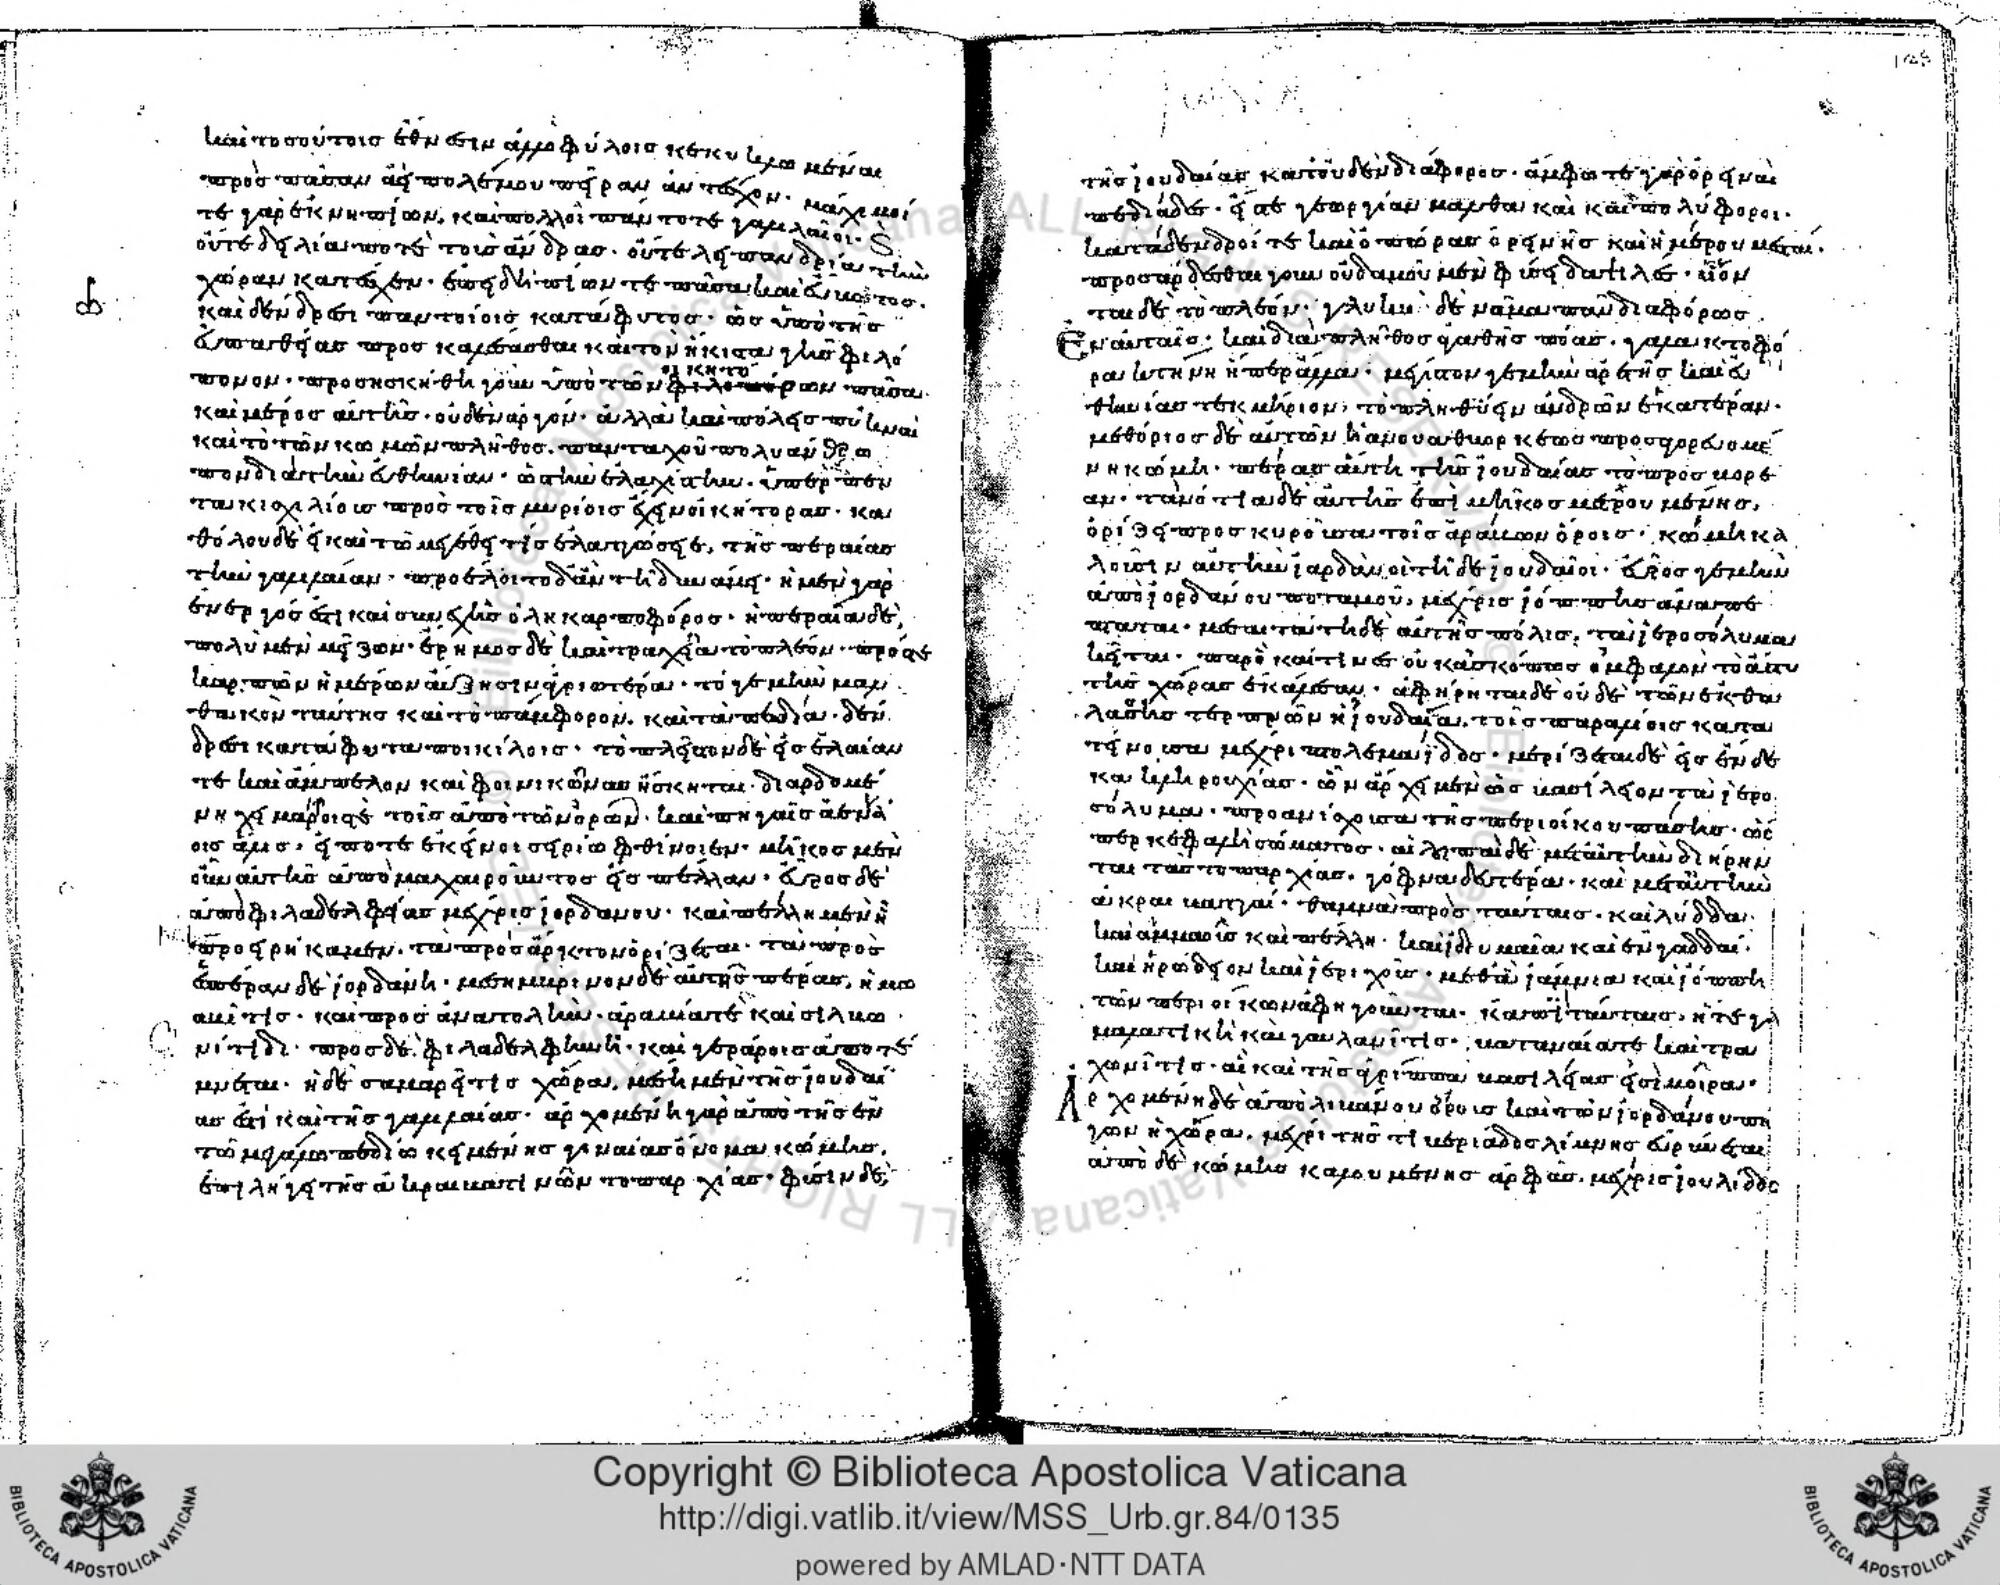 καὶ τοσούτοις ἔθνεσιν ἀλλοφύλοις κεκυκλωμέναι
πρὸς πᾶσαν ἀεὶ πολέμου πεῖραν ἀντέχον· μάχιμοί
τε γὰρ ἐκ νηπίων, καὶ πολλοὶ πάντοτε γαλιλαῖοι·
οὔτε δειλία ποτὲ τοὺς ἄνδρας· οὔτε λειπανδρία τὴν
χώραν κατέσχεν· ἐπειδὴ πίων τε πᾶσα καὶ εὔβοτος·
καὶ δένδρεσι παντοίοις κατάφυτος· ὡς ὑπὸ τῆς
εὐπαθείας προσκαλέσασθαι καὶ τὸν ἥκιστα γῆς φιλό
πονον· προσησκήθη γοῦν ὑπὸ τῶν οἰκητόρων πᾶσα·
καὶ μέρος αὐτῆς οὐδὲν ἀργόν· ἀλλὰ καὶ πόλεις πυκναὶ
καὶ τὸ τῶν κωμῶν πλῆθος. πανταχοῦ πολυάνθρω
πον διὰ τὴν εὐθηνίαν· ὡς τὴν ἐλαχίστην. ὑπὲρ πεν
τακισχιλίους πρὸς τοῖς μυρίοις ἔχειν οἰκήτορας· κα
θόλου δὲ εἰ καὶ τῶ μεγέθει τίς ἐλαττώσειε, τῆς περαίας
τὴν γαλιλαίαν· προέλοιτο δ' ἂν τῆ δυνάμει· ἡ μὲν γὰρ
ἐνεργός ἐστι καὶ συνεχὴς ὅλη καρποφόρος· ἡ περαία δὲ,
πολὺ μὲν μείζων· ἔρημος δὲ καὶ τραχεῖα τὸ πλέον· πρός τε
καρπῶν ἡμέρων αὔξησιν ἀγριωτέρα· τό γε μὴν μαλ
θακὸν ταύτης καὶ τὸ πάμφορον. καὶ τὰ πεδία· δέν
δρεσι κατάφυτα ποικίλοις· τὸ πλεῖστον δὲ εἰς ἐλαίαν
τε καὶ ἄμπελον καὶ φοινικῶνας ἤσκηται· διαρδομέ
νη χειμάρροις τὲ τοῖς ἀπὸ τῶν ὀρῶν· καὶ πηγαῖς ἀεννά
οις ἅλις· εἴποτε ἐκεῖνοι σειρίω φθίνοιεν· μῆκος μὲν
οὖν αὐτῆς ἀπὸ μαχαιροῦντος εἰς πέλλαν· εὖρος δὲ
ἀπὸ φιλαδελφείας μέχρις ἰορδάνου· καὶ πέλλη μὲν ἣ
προειρήκαμεν. τὰ πρὸς ἄρκτον ὁρίζεται· τὰ πρὸς
ἑσπέραν δὲ ἰορδάνη· μεσημβρινὸν δὲ αὐτῆς πέρας, ἡ μω
αβῖτις· καὶ πρὸς ἀνατολὴν· ἀραβία τὲ καὶ σιλβω
νίτιδι· πρὸς δὲ φιλαδελφηνῆ· καὶ γεράροις ἀποτέ
μνεται· ἡ δὲ σαμαρεῖτις χώρα, μέση μὲν τῆς ἰουδαί
ας ἐστὶ καὶ τῆς γαλιλαίας· ἀρχομένη γὰρ ἀπὸ τῆς ἐν
τῶ μεγάλω πεδίω κειμένης γηναίας ὄνομα κώμης,
ἐπιλήγει τῆς ἀκραβατινῶν τοπαρχίας· φύσιν δὲ,
τῆς ἰουδαίας κατ' οὐδὲν διάφορος· ἄμφω τε γὰρ ὀρειναὶ
πεδιάδες· εἴς τε γεωργίαν μαλθακαὶ καὶ πολύφοροι·
κατάδενδροί τε καὶ ὀπώρας ὀρεινῆς καὶ ἡμέρου μεσταί·
προσάρδεσθαι γοῦν οὐδαμοῦ μὲν φύσει διψάδες· ὕον
ται δὲ τὸ πλέον· γλυκὺ δὲ νᾶμα πᾶν διαφόρως
Ἐν αὐταῖς· καὶ διὰ πλῆθος ἀγαθῆς πόας· γαλακτοφό
ρα κτήνη ἢ παρ' ἄλλα· μέγιστόν γε μὴν ἀρετῆς καὶ εὐ
θηνίας τεκμήριον, τὸ πληθύειν ἀνδρῶν ἑκατέραν·
μεθόριος δὲ αὐτῶν ἡ ἀνουαθ βορκέως προσαγορευομέ
νη κώμη· πέρας αὕτη τῆς ἰουδαίας τὸ πρὸς βορέ
αν· τὰ νότια δὲ αὐτῆς ἐπὶ μῆκος μετρουμένης,
ὁρίζει προσκυροῦσα τοῖς ἀράβων ὅροις· κώμη κα
λοῦσιν αὐτὴν ἰαρδὰν οἱ τῆδε ἰουδαῖοι· εὖρός γε μὴν
ἀπὸ ἰορδάνου ποταμοῦ, μέχρις ἰόππης ἀναπέ
πταται· μεσαιτάτη δὲ αὐτῆς πόλις, τὰ ἱεροσόλυμα
κεῖται· παρὸ καί τινες οὐκ ἀσκόπως ὀμφαλὸν τὸ ἄστυ
τῆς χώρας ἐκάλεσαν· ἀφήρηται δὲ οὐδὲ τῶν ἐκ θα
λάσσης τερπνῶν ἡ ἰουδαία, τοῖς παραλίοις κατα
τείνουσα μέχρι πτολεμαΐδος· μερίζεται δὲ εἰς ἕνδε
κα κληρουχίας· ὧν ἄρχει μὲν ὡς βασίλειον τὰ ἱερο
σόλυμα· προανίσχουσα τῆς περιοίκου πάσης· ὥσ
περ κεφαλὴ σώματος· αἱ λοιπαὶ δὲ μετ' αὐτὴν διήρην
ται τὰς τοπαρχίας. γόφνα δευτέρα· καὶ μετ' αὐτὴν
ἀκραβαταί· θαμνὰ πρὸς ταύταις· καὶ λύδδα·
καὶ ἀμμαοῦς καὶ πέλλη· καὶ ἰδουμαία καὶ ἐνγαδδαί·
καὶ ἡρώδειον καὶ ἱεριχοῦς· μεθ' ἃς ἰάμνια καὶ ἰόππη
τῶν περιοίκων ἀφηγοῦνται· κἀπὶ ταύταις, ἥ τε γα
μαλιτικὴ καὶ γαυλανῖτις, βαταναία τε καὶ τρα
χωνῖτις· αἳ καὶ τῆς ἀγρίππα βασιλείας εἰσὶ μοῖραι·
Ἀρχομένη δὲ ἀπὸ λιβάνου ὄρους καὶ τῶν ἰορδάνου πη
γῶν ἡ χώρα, μέχρι τῆς τιβεριάδος λίμνης εὐρύνεται
ἀπὸ δὲ κώμης καλουμένης ἀρφᾶς. μέχρις ἰουλιάδος
Copyright © Biblioteca Apostolica Vaticana
http://digi.vatlib.it/view/MSS_Urb.gr.84/0135
powered by AMLAD·NTT DATA
BIBLIOTECA APOSTOLICA VATICANA
BIBLIOTECA APOSTOLICA VATICANA